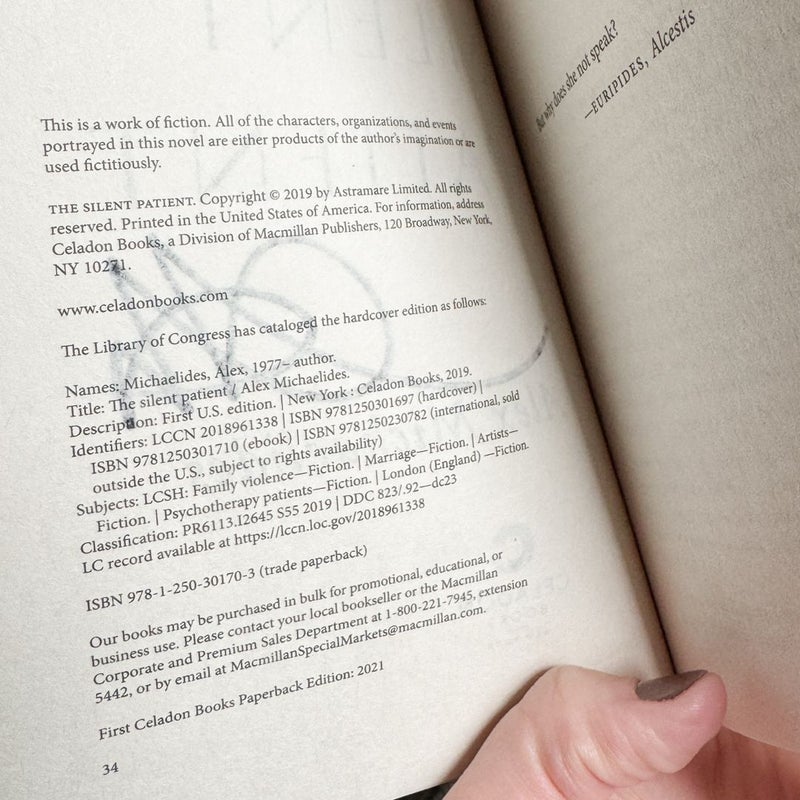 This is a work of fiction. All of the characters, organizations, and events
portrayed in this novel are either products of the author's imagination or are
used fictitiously.
THE SILENT PATIENT. Copyright © 2019 by Astramare Limited. All rights
reserved. Printed in the United States of America. For information, address
Celadon Books, a Division of Macmillan Publishers, 120 Broadway, New York,
NY 10271.
www.celadonbooks.com
The Library of Congress has cataloged the hardcover edition as follows:
Names: Michaelides, Alex, 1977– author.
Title: The silent patient / Alex Michaelides.
Description: First U.S. edition. | New York : Celadon Books, 2019.
Identifiers: LCCN 2018961338 | ISBN 9781250301697 (hardcover) |
ISBN 9781250301710 (ebook) | ISBN 9781250230782 (international, sold
outside the U.S., subject to rights availability)
Subjects: LCSH: Family violence—Fiction. | Marriage—Fiction. | Artists—
Fiction. | Psychotherapy patients—Fiction. | London (England) —Fiction.
Classification: PR6113.I2645 S55 2019 | DDC 823/.92—dc23
LC record available at https://lccn.loc.gov/2018961338
ISBN 978-1-250-30170-3 (trade paperback)
Our books may be purchased in bulk for promotional, educational, or
business use. Please contact your local bookseller or the Macmillan
Corporate and Premium Sales Department at 1-800-221-7945, extension
5442, or by email at MacmillanSpecialMarkets@macmillan.com.
First Celadon Books Paperback Edition: 2021
34
But why does she not speak?
—EURIPIDES, Alcestis